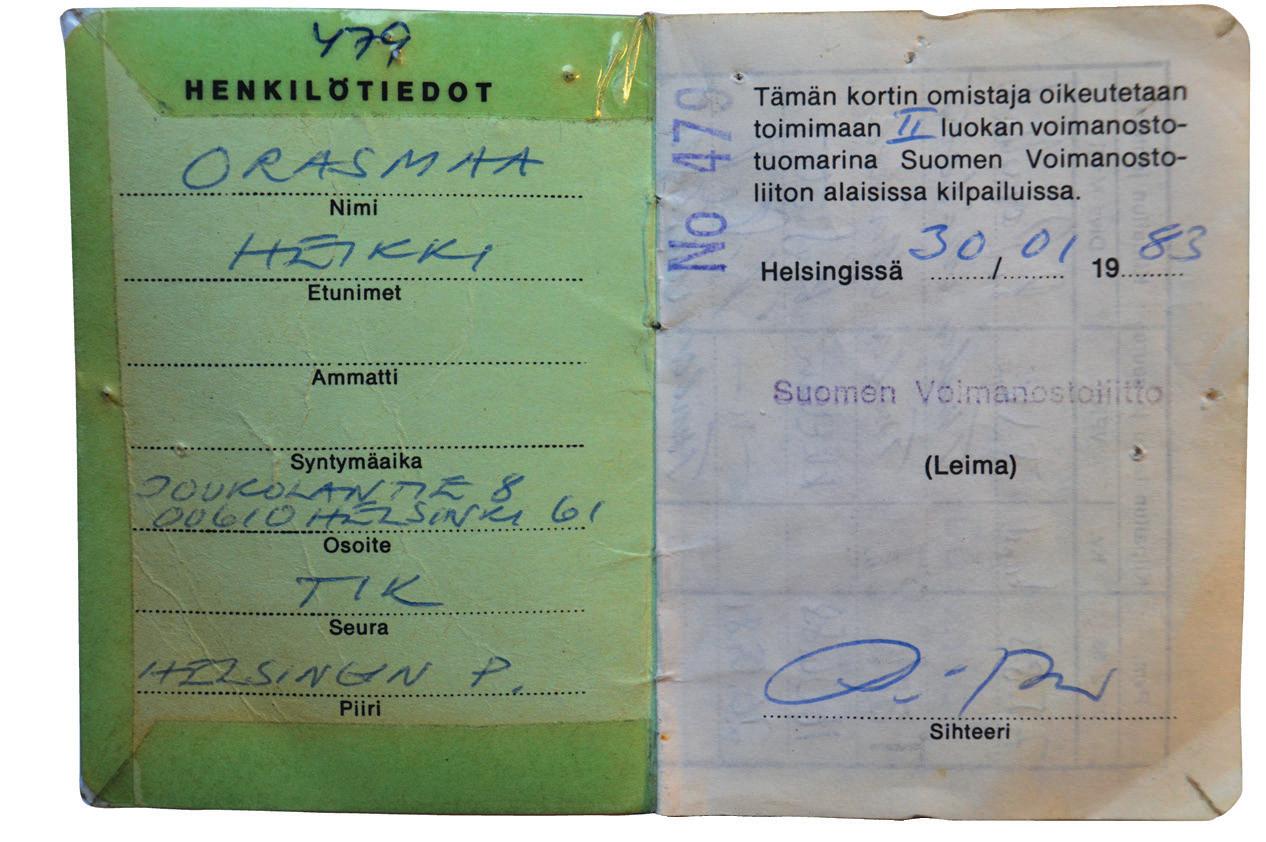 479
HENKILÖTIEDOT
ORASMAA
Nimi
HEIKKI
Etunimet
Ammatti
Syntymäaika
JOUKOLANTIE 8
00610 HELSINKI 61
Osoite
TIK
Seura
HELSINGIN P.
Piiri
No 479
Tämän kortin omistaja oikeutetaan
toimimaan II luokan voimanosto-
tuomarina Suomen Voimanosto-
liiton alaisissa kilpailuissa.
Helsingissä 30/01 1983
Suomen Voimanostoliitto
(Leima)
Sihteeri